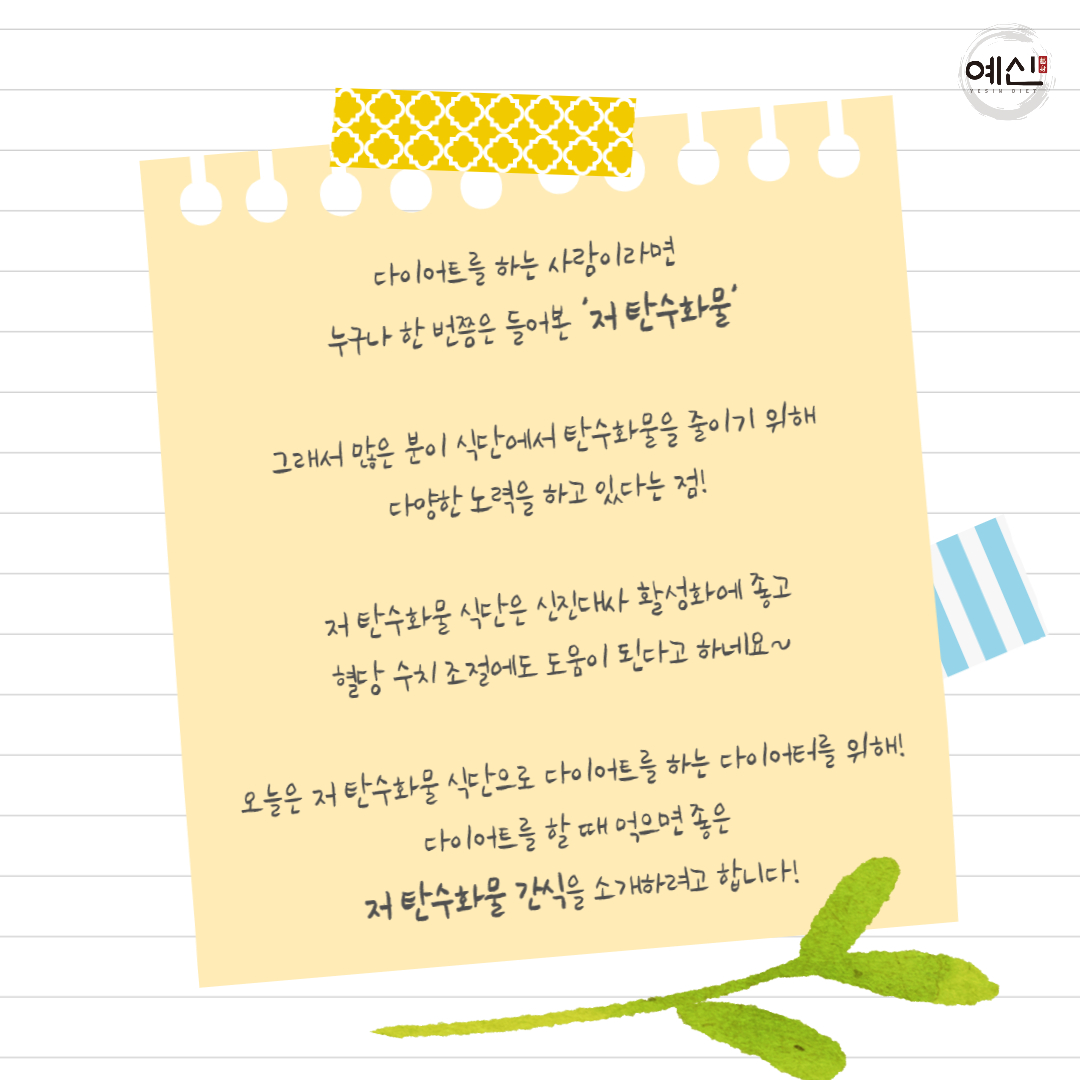 예신
YESIN DIET
다이어트를 하는 사람이라면
누구나 한 번쯤은 들어본 '저 탄수화물'
그래서 많은 분이 식단에서 탄수화물을 줄이기 위해
다양한 노력을 하고 있다는 점!
저 탄수화물 식단은 신진대사 활성화에 좋고
혈당 수치 조절에도 도움이 된다고 하네요~
오늘은 저 탄수화물 식단으로 다이어트를 하는 다이어터를 위해!
다이어트를 할 때 먹으면 좋은
저 탄수화물 간식을 소개하려고 합니다!